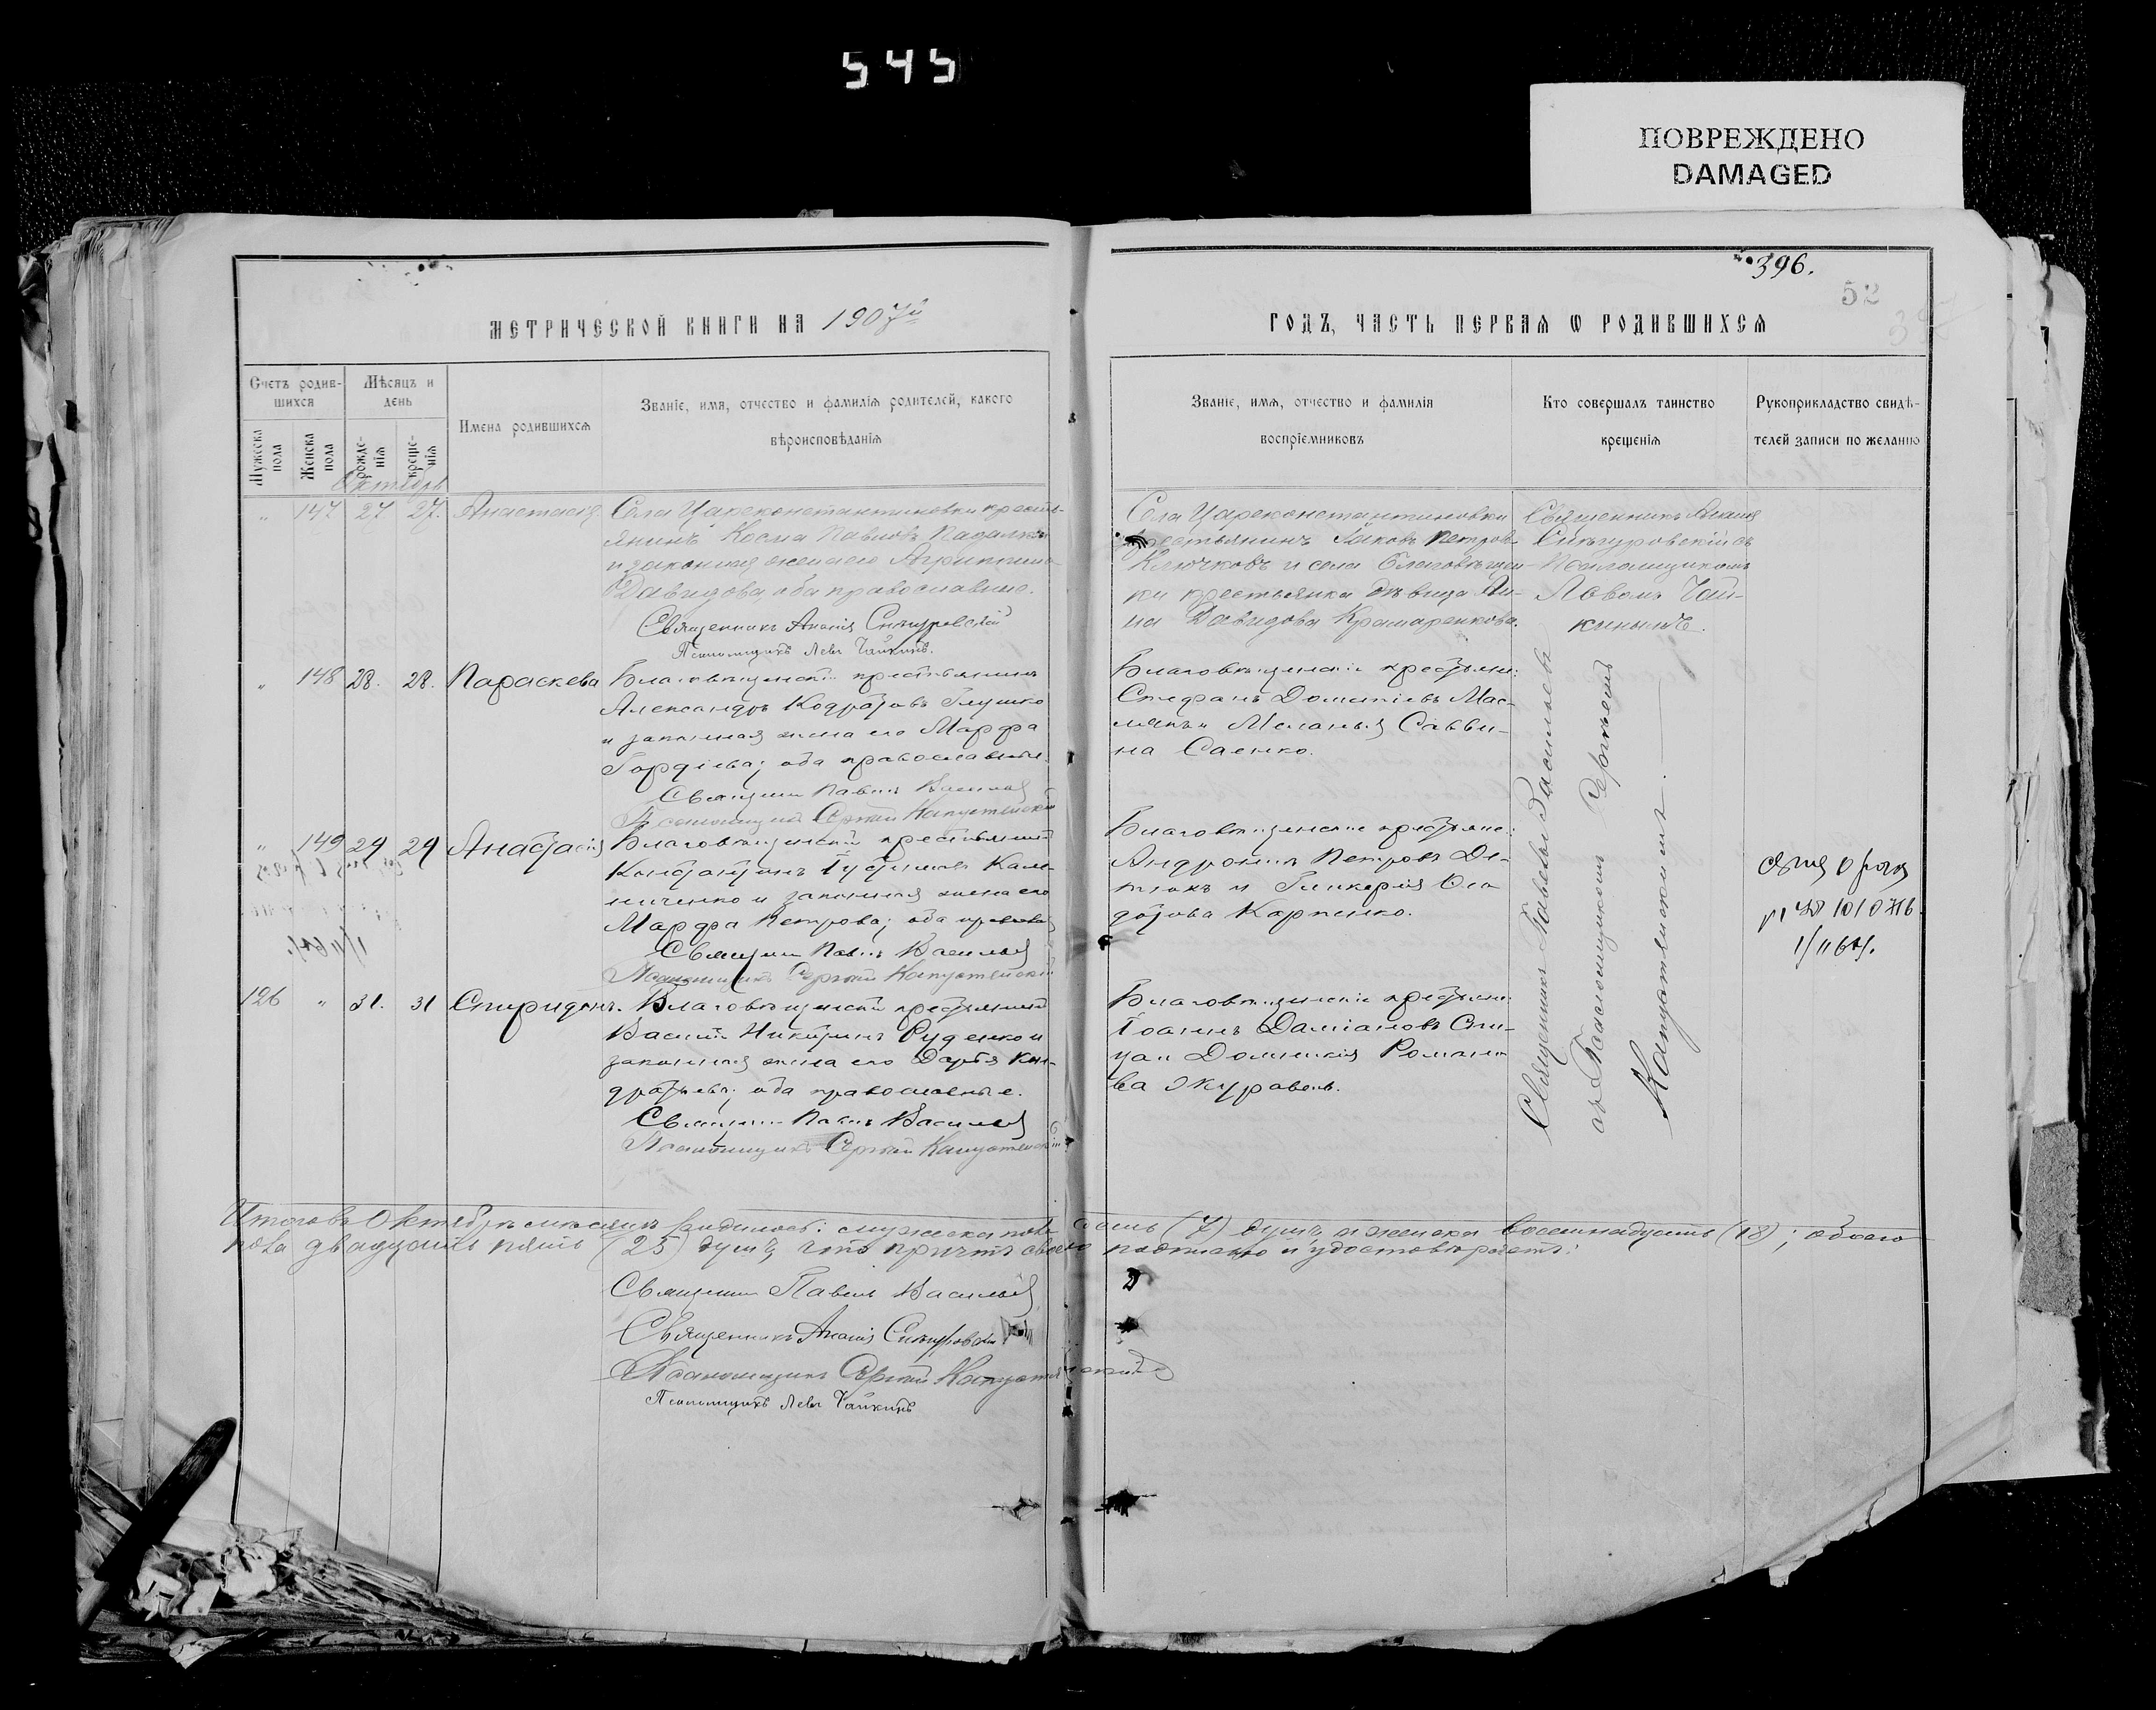 545
ПОВРЕЖДЕНО
DAMAGED
396.
52
МЕТРИЧЕСКОЙ КНИГИ НА 1907й
ГОДЪ, ЧАСТЬ ПЕРВАЯ Ѡ РОДИВШИХСЯ
Счетъ родив-
шихся
Мужеска
пола
Женска
пола
Мѣсяцъ и
день
рожде-
нія
креще-
нія
Имена родившихся
Званіе, имя, отчество и фамилія родителей, какого
вѣроисповѣданія
Званіе, имя, отчество и фамилія
воспріемниковъ
Кто совершалъ таинство
крещенія
Рукоприкладство свидѣ-
телей записи по желанію
Октябрь
„ 147 27 27. Анастасія.
Села Цареконстантиновки кресть-
янинъ Косма Павловъ
и законная жена его Агриппина
Давидова оба православные.
Священникъ Ананія Снѣгуровскій
Псаломщикъ Левъ Чайкинъ.
Села Цареконстантиновки
крестьянинъ Іаковъ Петровъ
Ключковъ и села Благовѣщен-
ки крестьянка дѣвица Ан-
на Давидова Крамаренкова.
Священникъ Ананія
Снѣгуровскій съ
Псаломщикомъ
Львомъ Чай-
кинымъ.
„ 148 28. 28. Параскева
Благовѣщенскій крестьянинъ
Александръ Кодратовъ Глушко
и законная жена его Марфа
Гордіева; оба православные.
Священникъ Павелъ Васильевъ
Псаломщикъ Сергѣй Капустянскій
Благовѣщенскіе крестьяне:
Стефанъ Дометіевъ Мас-
лякъ и Меланья Савви-
на Саенко.
„ 149 29 29 Анастасія
Благовѣщенскій крестьянинъ
Константинъ Іустиновъ Кали-
ниченко и законная жена его
Марфа Петрова; оба православ
Священникъ Павелъ Васильевъ
Псаломщикъ Сергѣй Капустянскій
Благовѣщенскіе крестьяне:
Андроникъ Петровъ Де-
и Гликерія Ѳео-
дотова Карпенко.
126 „ 31. 31 Спиридонъ.
Благовѣщенскій крестьянинъ
Василій Никитинъ Руденко и
законная жена его Дарья Кон-
дратьева; оба православные.
Священникъ Павелъ Васильевъ
Псаломщикъ Сергѣй Капустянскій
Благовѣщенскіе крестьяне:
Іоаннъ Даміановъ
и Домникія Романо-
ва Журавель.
Священникъ Павелъ Васильевъ
съ Псаломщикомъ Сергѣемъ
Капустянскимъ.
Итого въ Октябрѣ мѣсяцѣ родилось: мужеска пола семь (7) душъ, и женска восемнадцать (18); обоего
пола двадцать пять (25) душъ, что причтъ своею подписью и удостовѣряетъ:
Священникъ Павелъ Васильевъ
Священникъ Ананія Снѣгуровскій
Псаломщикъ Сергѣй Капустянскій
Псаломщикъ Левъ Чайкинъ